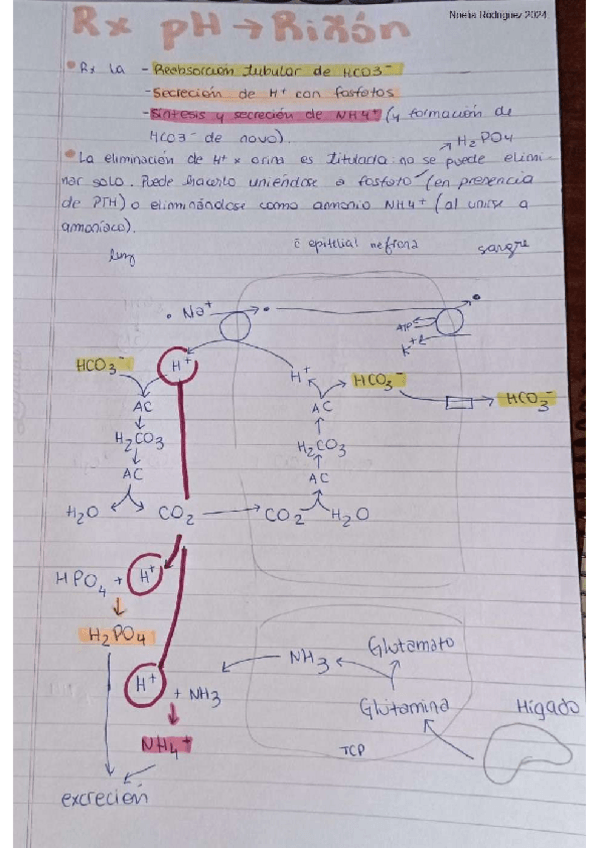 Noelia Rodriguez 2024
Rx pH → Riñón
• Rx la - Reabsorción tubular de HCO3⁻
- Secreción de H⁺ con fosfatos
- Síntesis y secreción de NH4⁺ (y formación de
HCO3⁻ de novo).
→ H2PO4
• La eliminación de H⁺ x orina es titulada: no se puede elimi-
nar solo. Puede hacerlo uniéndose a fosfato (en presencia
de PTH) o eliminándose como amonio NH4⁺ (al unirse a
amoníaco).
luz
c epitelial nefrona
sangre
• Na⁺
ATP
K⁺
HCO3⁻
H⁺
H⁺
HCO3⁻
HCO3⁻
AC
AC
H2CO3
H2CO3
AC
AC
H2O
CO2
CO2
H2O
HPO4 + H⁺
H2PO4
Glutamato
NH3
H⁺ + NH3
Glutamina
Hígado
NH4⁺
TCP
excreción